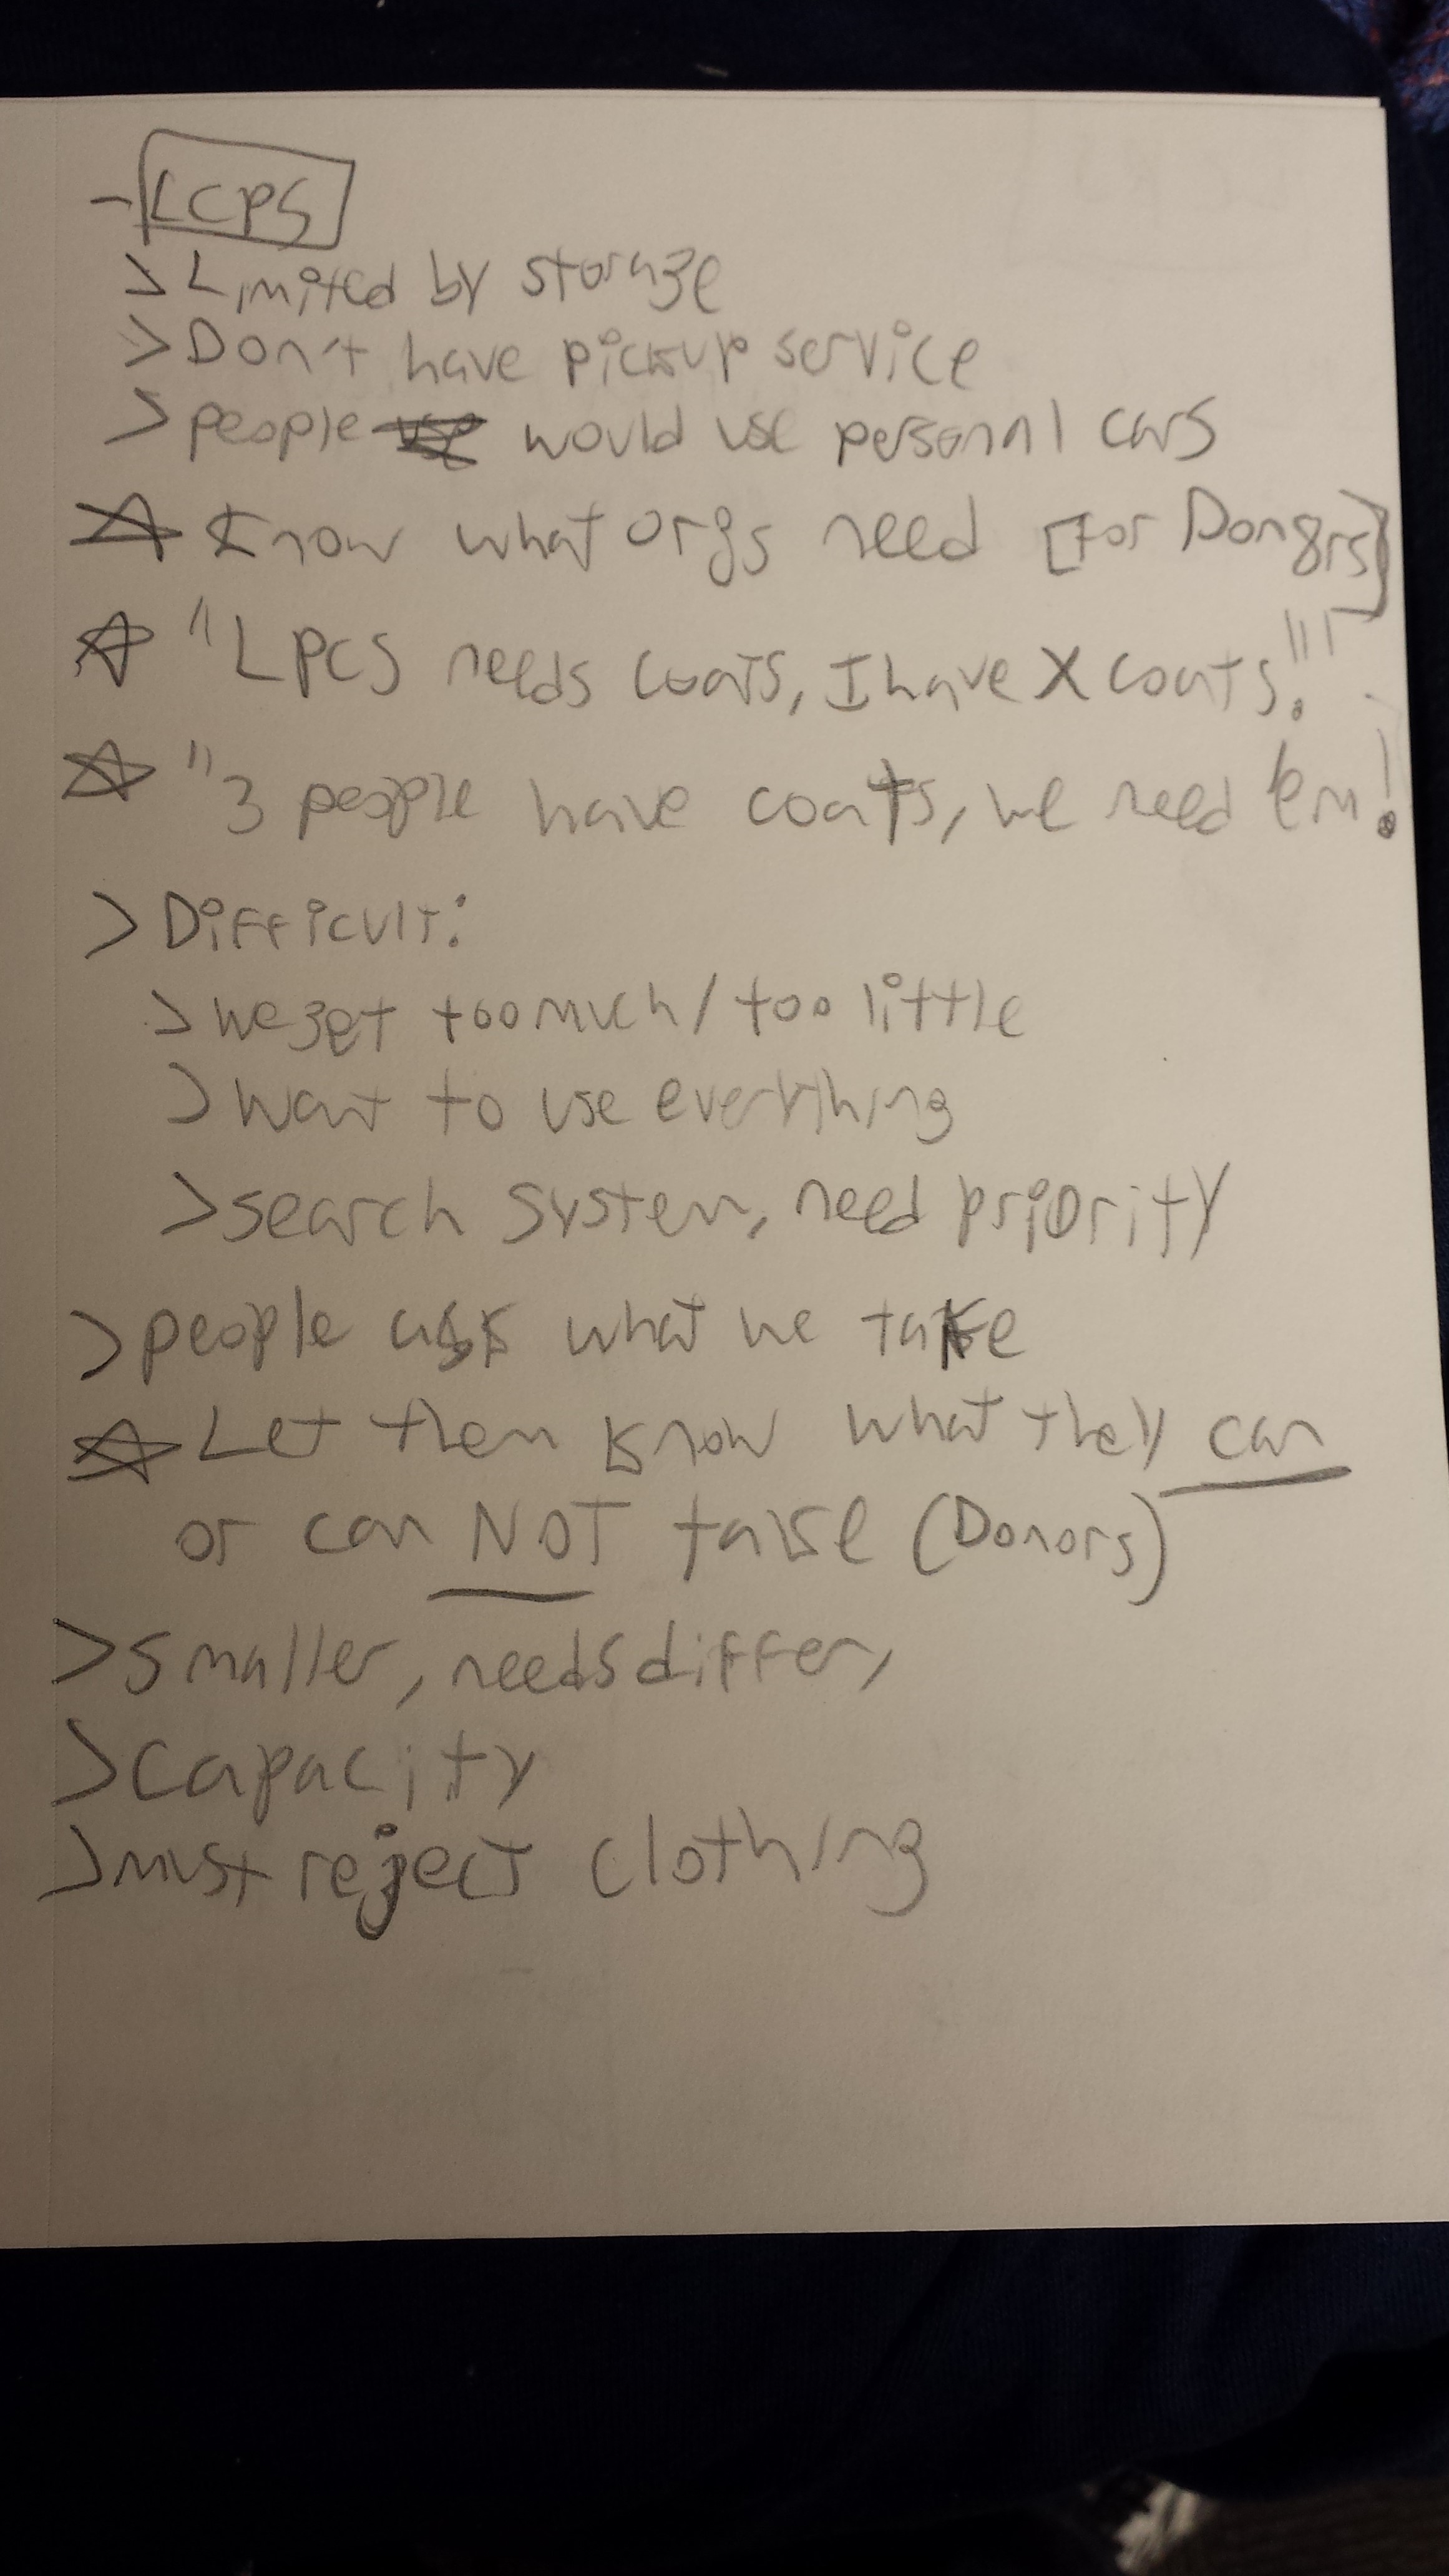 - LCPS
> Limited by storage
> Don't have pickup service
> people would use personal cars
☆ Know what orgs need [For Donors]
☆ "LPCS needs coats, I have X coats!"
☆ "3 people have coats, we need 'em!
> Difficult:
> we get too much / too little
> want to use everything
> search system, need priority
> people ask what we take
☆ Let them know what they can
or can NOT take (Donors)
> smaller, needs differ,
> capacity
> must reject clothing